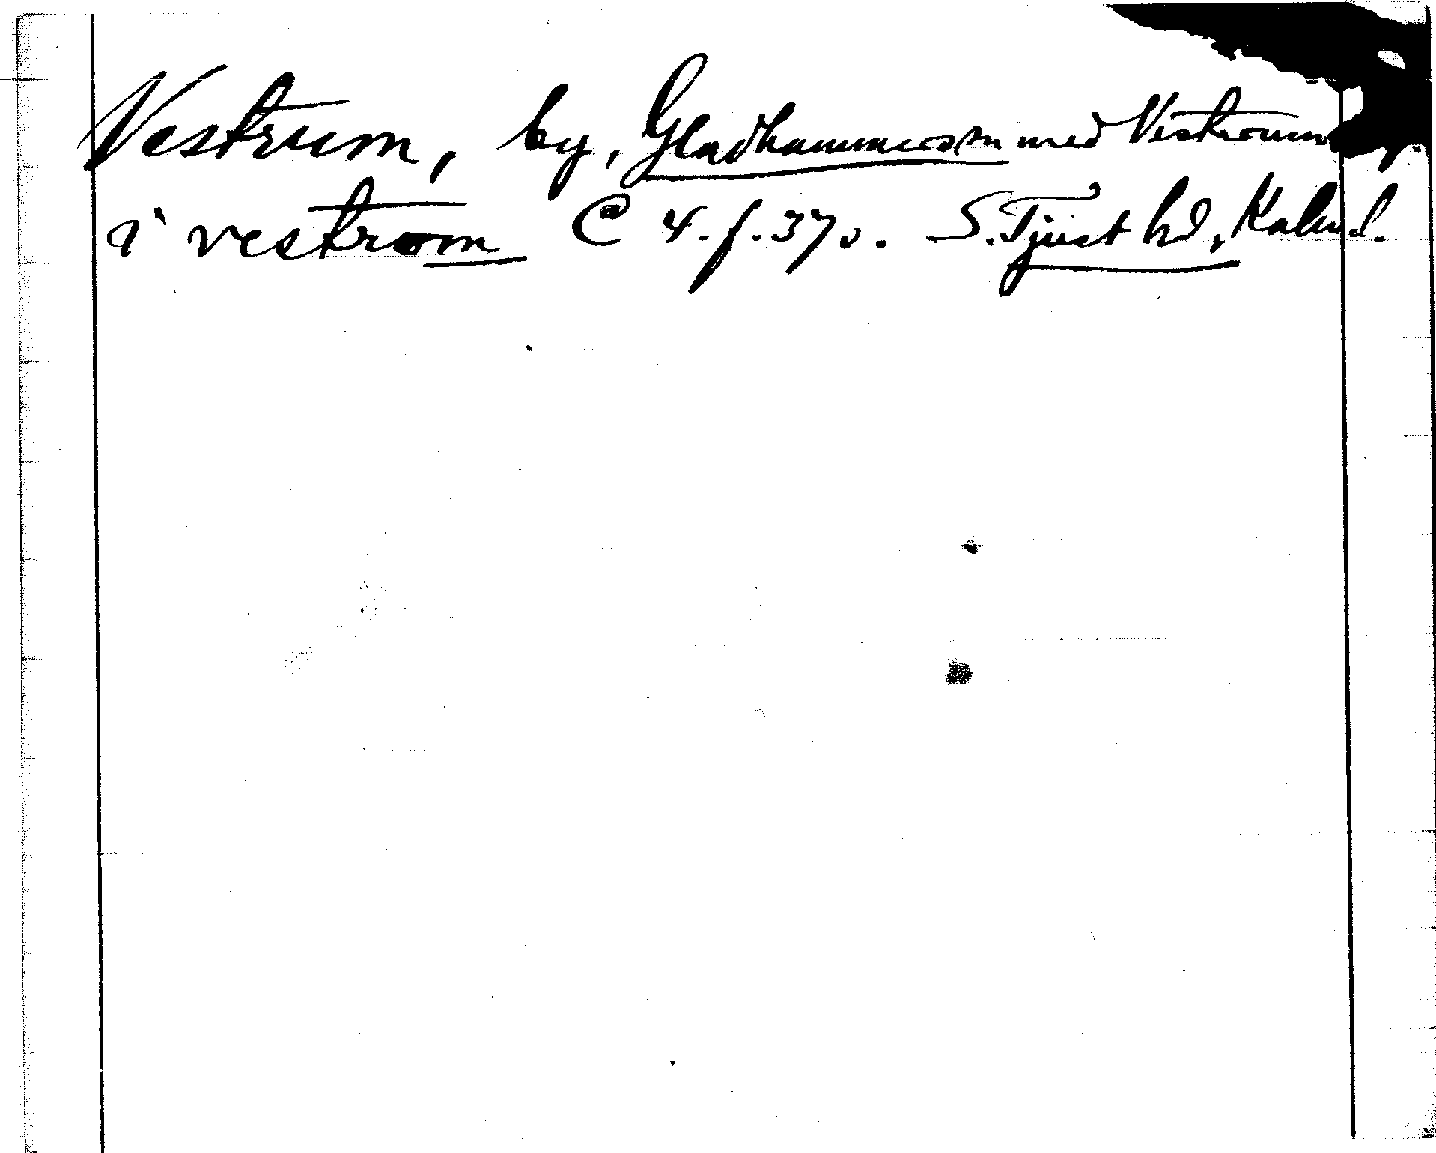 Vestrum, by, Gladhammars sn med Vestrum
i vestrom C 4. f. 37v. S. Tjust hd, Kalm. l.